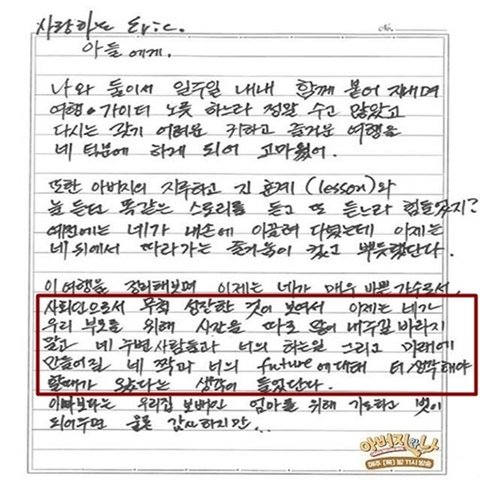 사랑하는 Eric.
아들에게.
No.
나와 둘이서 일주일 내내 함께 붙어 지내며
여행 가이더 노릇 하느라 정말 수고 많았고
다시는 갖기 어려운 귀하고 즐거운 여행을
네 덕분에 하게 되어 고마웠어.
또한 아버지의 지루하고 진 훈계 (lesson)와
늘 듣던 똑같은 스토리를 듣고 또 듣느라 힘들었지?
예전에는 네가 내손에 이끌려 다녔는데 이제는
네 뒤에서 따라가는 즐거움이 컸고 뿌듯했단다.
이 여행을 정리해보며 이제는 네가 매우 바쁜 가수로서,
사회인으로서 무척 성장한 것이 보여서 이제는 네가
우리 부모을 위해 시간을 따로 많이 내주길 바라지
말고 네 주변사람들과 너의 하는일 그리고 미래에
만들어질 네 짝과 너의 future에 대해 더 생각해야
할때가 왔다는 생각이 들었단다.
아빠보다는 우리집 보배인 엄마를 위해 기도하고 벗이
되어주면 물론 감사하지만...
아버지와 나
매주 [목] 밤 11시 방송